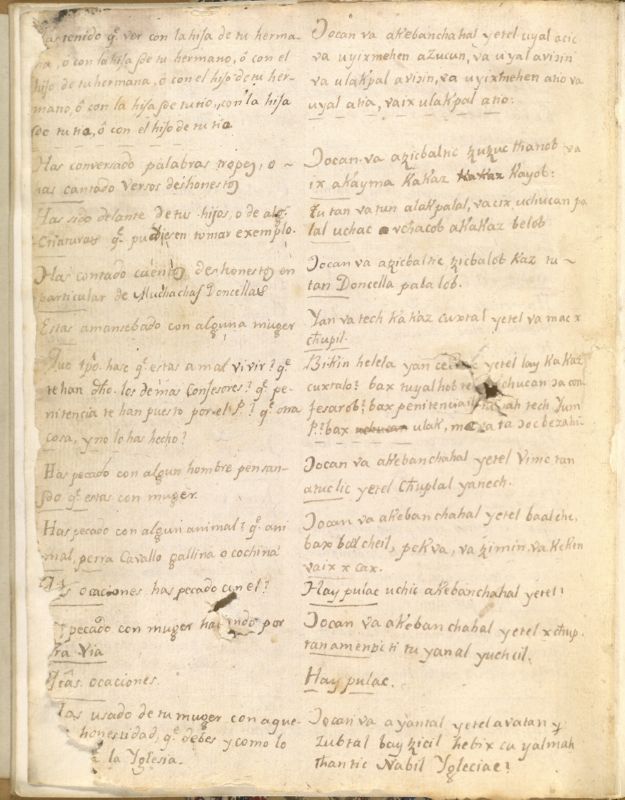 has tenido qe. ver con la hija de tu herma-
na, ó con la hija de tu hermano, ó con el
hijo de tu hermana, ó con el hijo de tu her-
mano, ó con la hija de tu tio, con la hija
de tu tia, ó con el hijo de tu tia
Has conversado palabras tropes, o
has cantado versos deshonestos
Has sido delante de tus hijos, o de alg.
Criaturas qe. pudiesen tomar exemplo.
Has contado cuentos deshonestos en
particular de Muchachas Doncellas
Estas amansebado con alguna muger
Que tpo. hase qe. estas a mal vivir? qe.
te han dho. los demas Confesores? qe. pe-
nitencia te han puesto por el P.? qe. otra
cosa, y no lo has hecho?
Has pecado con algun hombre pensan-
do qe. estas con muger.
Has pecado con algun animal? qe. ani
mal, perra Cavallo gallina o cochina
ocaciones has pecado con el?
pecado con muger haciendo por
tra via
ocaciones.
Has usado de tu muger con aque-
honestidad, qe. debes y como lo
la Yglesia.
Ɔocan va akebanchahal yetel uyal acic
va uyixmehen azucun, va uyal avisin
va ulakpal avisin, va uyixmehen atio va
uyal atia, vaix ulakpal atio.
Ɔocan va aɔicbaltic ɔuɔuc thanob va
ix akayma kakaz kayob:
tu tan va tun alakpalal, vaix uchucan pa
lal uchac vchacob akakaz belob
Ɔocan va aɔicbaltic ɔicbalob kaz tu
tan Doncella palalob.
Yan va tech kakaz cuxtal yetel va mac x
chupil.
Bikin helela yan yetel lay kakaz
cuxtalo? bax tuyalhob te uchucan ɔa con
fesarob? bax penitencia tech Yum
P.? bax ulak, ma va ta ɔoc bezahi
Ɔocan va akebanchahal yetel vinic tan
atuclic yetel chuplal yanech.
Ɔocan va akebanchahal yetel baalche,
bax balcheil, pek va, va ɔimin, va keken
vaix x cax.
Hay pulac uchic akebanchahal yetel?
Ɔocan va akebanchahal yetel x chup
tanamenbiti tu yanal yuchcil.
Hay pulac.
Ɔocan va ayantal yetel avatan y
zubtal bay ɔicil hebix cu yalmah
thantic Nabil Ygleciae?